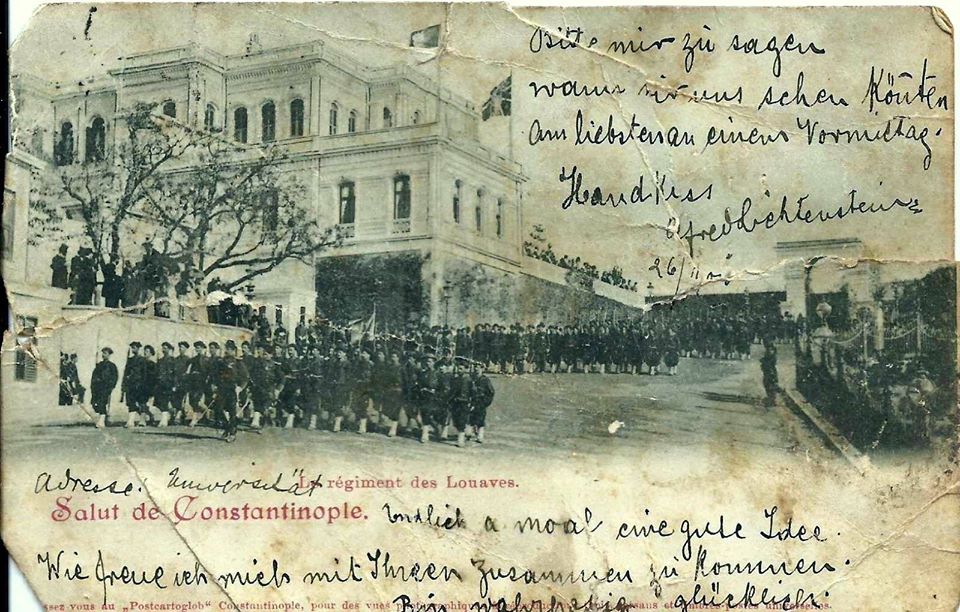 Bitte mir zu sagen
wann wir uns sehen könten
am liebsten an einem Vormittag.
Handkiss
Alfred Lichtenstein
26/II
Adresse: Universität
Le régiment des Louaves.
Salut de Constantinople.
Endlich a moal eine gute Idee.
Wie freue ich mich mit Ihnen zusammen zu kommen.
Bin wahrhaftig glücklich.
ssez-vous au „Postcartoglob" Constantinople, pour des vues